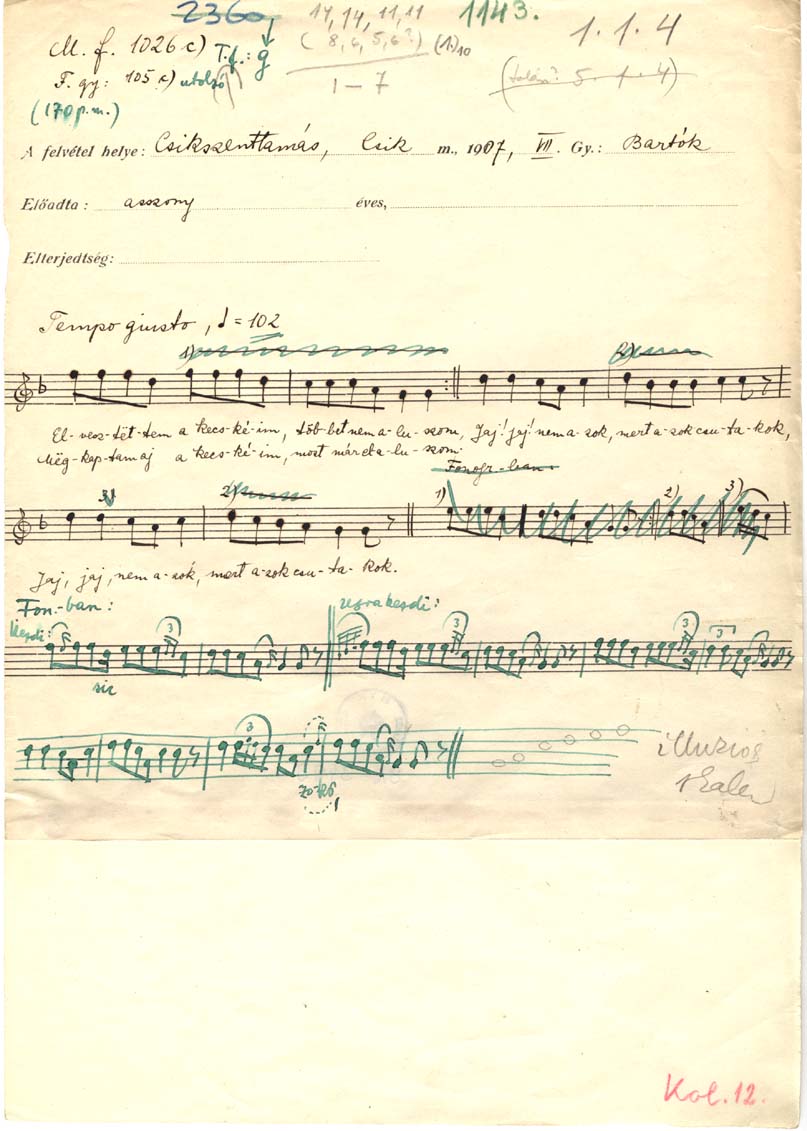 2360 14, 14, 11, 11 1143. 1. 1. 4
M. f. 1026 c) T. f.: g (8, 6, 5, 6?) (1.)10
F. gy: 105 c) utolsó 1–7 (talán? 5. 1. 4)
(170 p.m.)
A felvétel helye: Csikszenttamás, Csik m., 1907, VII. Gy.: Bartók
Előadta: asszony éves,
Elterjedtség:
Tempo giusto, ♩ = 102
1) 2)
El-vesz-tët-tem a kecs-ké-im, töb-bet nem a-lu-szom, Jaj! jaj! nem a-zok, mert a-zok csu-ta-kok,
Mëg-kap-tam aj a kecs-ké-im, most már el-a-lu-szom.
Fonogr-ban
3) 2) 1) 2) 3)
Jaj, jaj, nem a-zok, mert a-zok csu-ta-kok.
Fon.-ban: ujra kezdi:
kezdi: 3 3 3 3
sic
3
illuziós
skálen
Kol. 12.